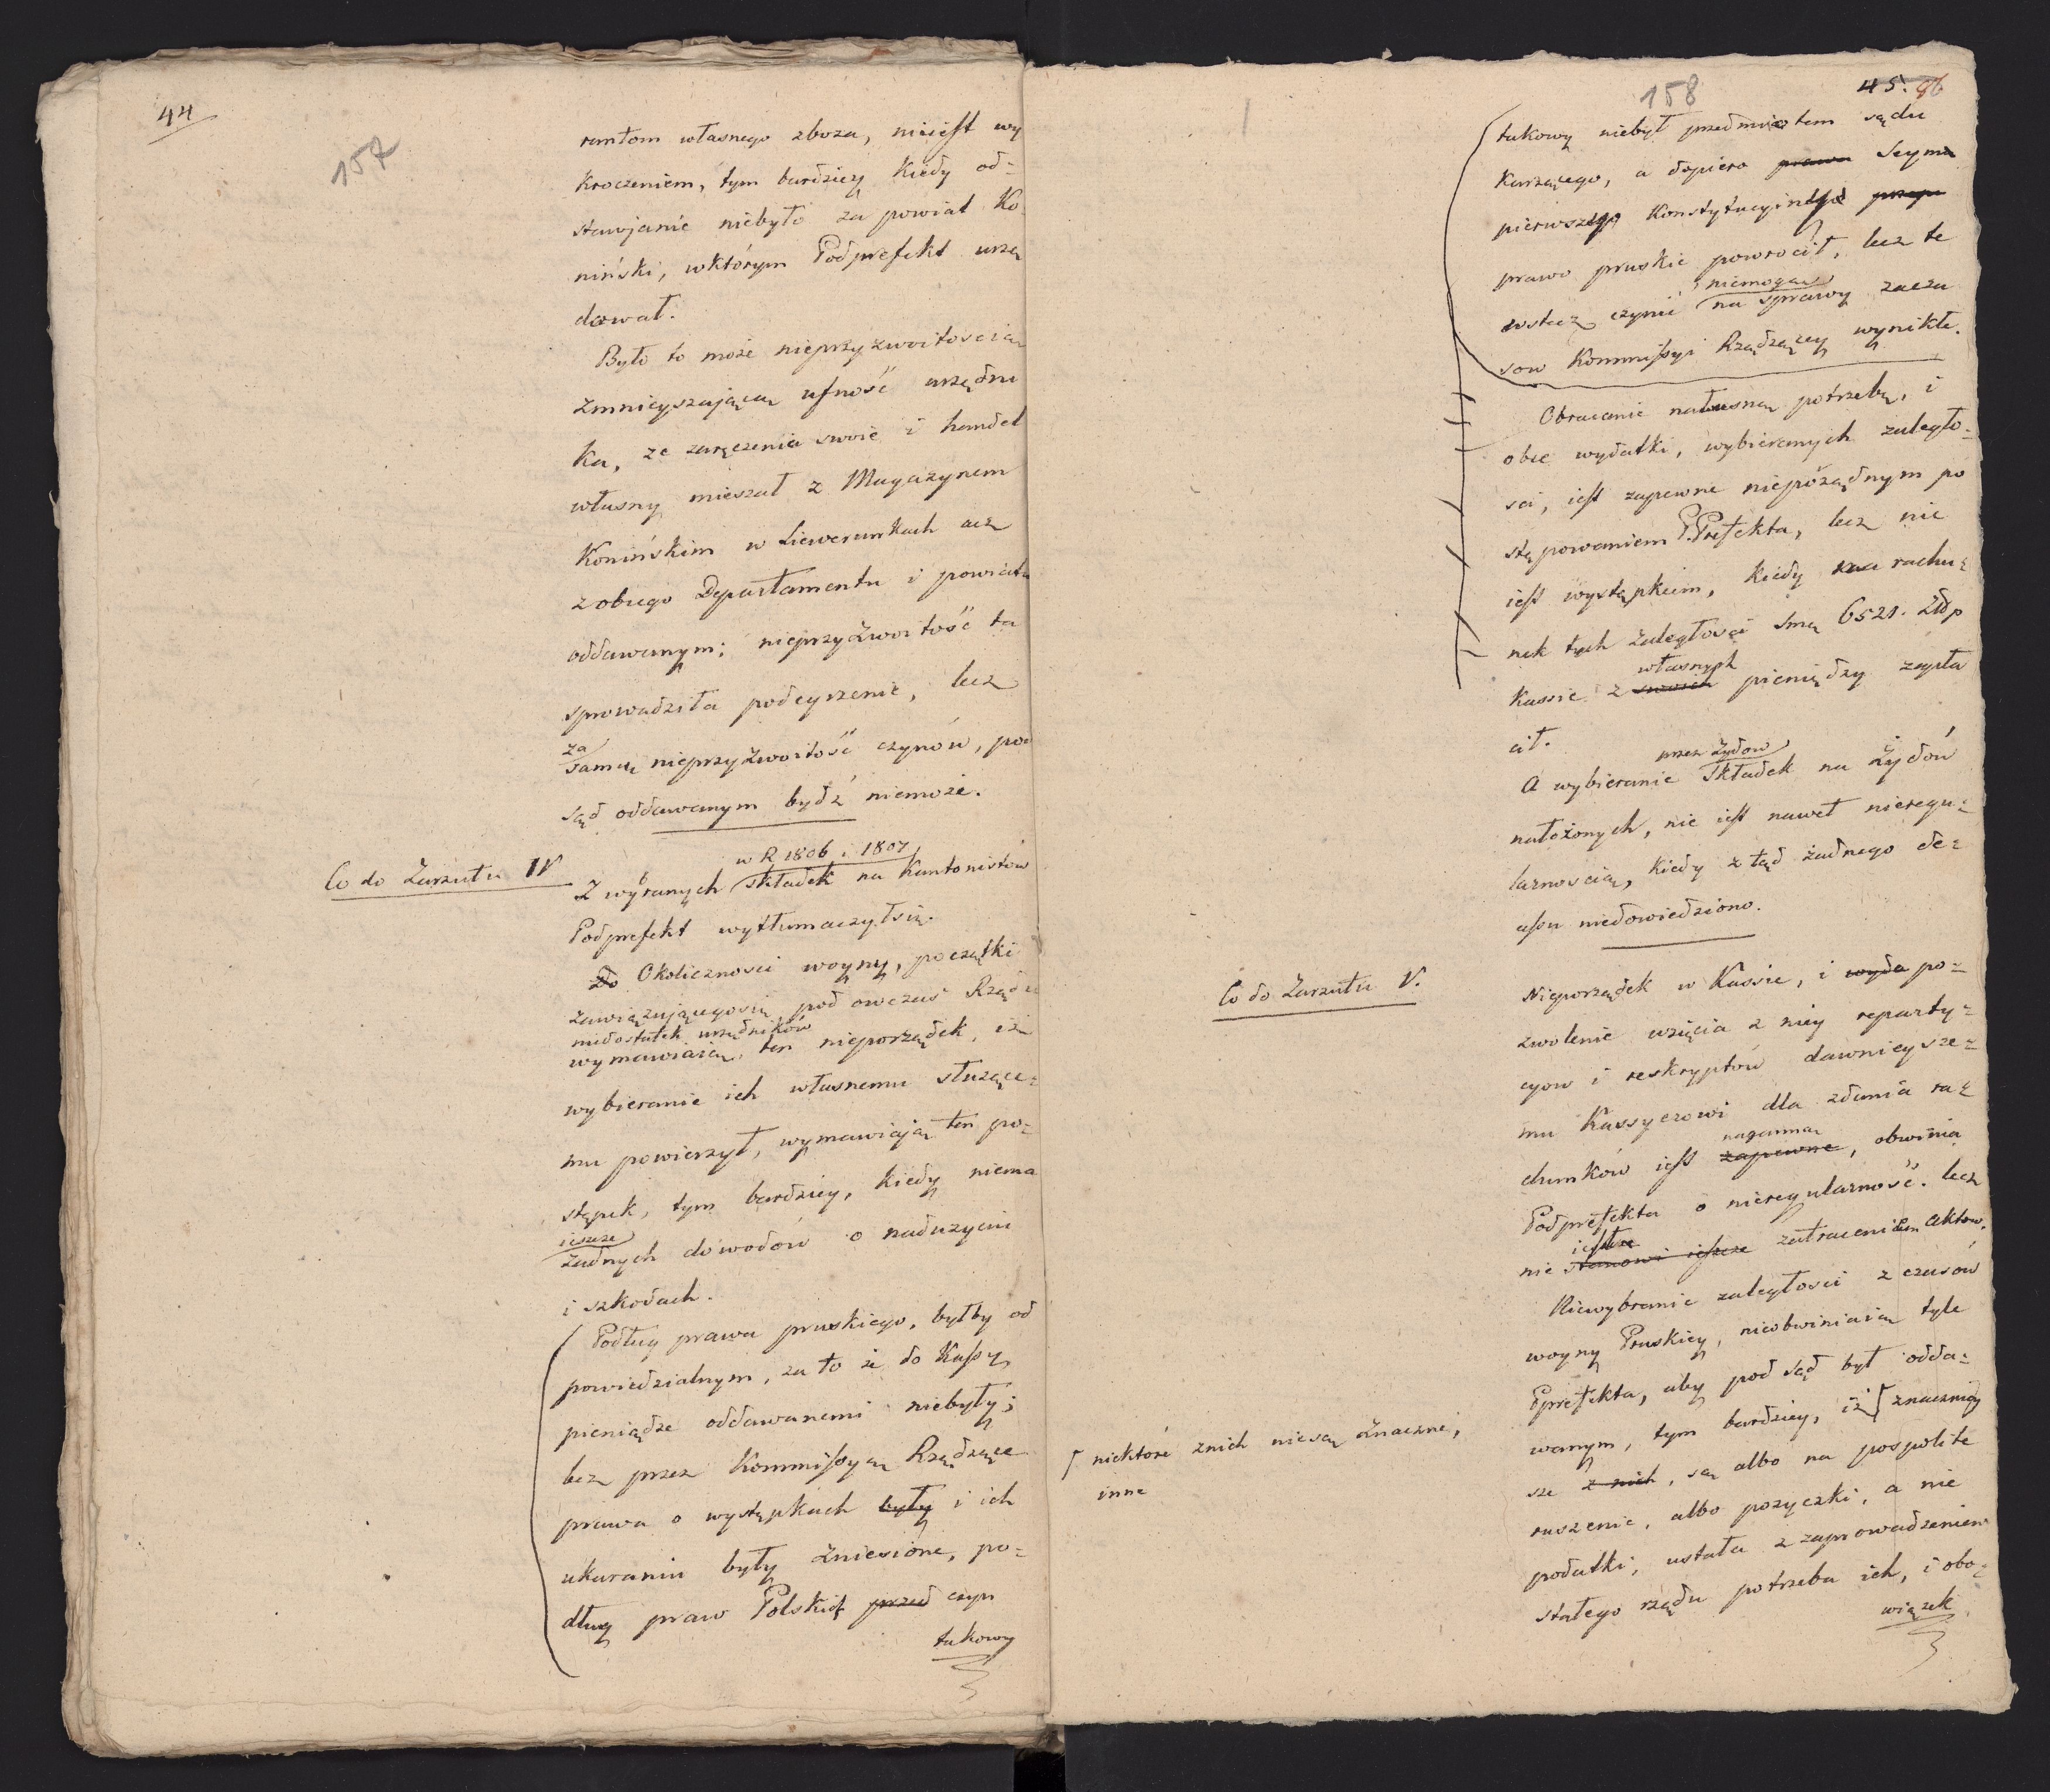 44
157
rantom własnego zboza, nieiest wy
kroczeniem, tym bardziey kiedy od=
stawjanie niebyło za powiat Ko
niński, wktórym Podprefekt urzę
dował.
Było to może nieprzyzwoitoscią
zmnieyszającą ufność urzędni
ka, ze zaręczenia swoie i handel
własny mieszał z Magazynem
Konińskim w Liwerunkach acz
z obcego Departamentu i powiatu
oddawanym; nieprzyzwoitość ta
sprowadziła podeyrzenie, lecz
za
samą nieprzyzwoitość czynów, pod
sąd oddawanym bydź niemoże.
Co do Zarzutu IV
w R 1806 i 1807
Z wybranych składek na Kantonistów
Podprefekt wytłumaczyłsię.
Do Okolicznosci woyny, początki
zawiązującegosię pod owczas Rządu
niedostatek urzędników
wymawiaią ten nieporządek, iż
wybieranie ich własnemu służące=
mu powierzył, wymawiają ten po=
stępek, tym bardziey, kiedy niema
ieszcze
żadnych dowodów o nadużyciu
i szkodach.
Podług prawa pruskiego, byłby od
powiedzialnym, za to że do Kassy
pieniądze oddawanemi niebyły;
lecz przez Kommissyą Rządzące
prawa o występkach były i ich
ukaraniu były zniesione, po=
dług praw Polskich przed czyn
takowy
158
45. 96
takowy niebył przedmiotem sądu
karzącego, a dopiero prawa Seyma
pierwszego Konstytucyinego przepi
prawo pruskie powrocił, lecz te
niemogą
wstecz czynić na sprawy zacza
sow Kommissyi Rządzącey wynikłe.
Obracanie nałasną potrzebę, i
obce wydatki, wybieranych zaległo=
sci, iest zapewne niepożądnym po
stępowaniem P.Prefekta, lecz nie
iest występkiem, kiedy na rachu=
nek tych zaległosci Smą 6521. Złp
własnych
Kassie z swoich pieniędzy zapła
cił.
przez Żydow
A wybieranie składek na Żydów
nałożonych, nie iest nawet nieregu=
larnoscią, kiedy z tąd żadnego de=
cessu niedowiedziono.
Co do Zarzutu V.
Nieporządek w Kassie, i wyda po=
zwolenie wzięcia z niey reparty=
cyow i reskryptów dawnieysze=
mu Kassyerowi dla zdania ra=
naganną
chunków iest zapewne, obwinia
Podprefekta o nieregularność. lecz
iest to
nie stanowi ieszcze zatraceniem aktow.
Niewybranie zaległosci z czasów
woyny Pruskiey, nieobwiniaią tyle
Pprefekta, aby pod sąd był odda=
wanym, tym bardziey, iż znaczniey
sze z nich, są albo na pospolite
niektóre znich niesą znaczne,
inne
ruszenie, albo pożyczki, a nie
podatki, ustała z zaprowadzeniem
stałego rządu potrzeba ich, i obo=
wiązek